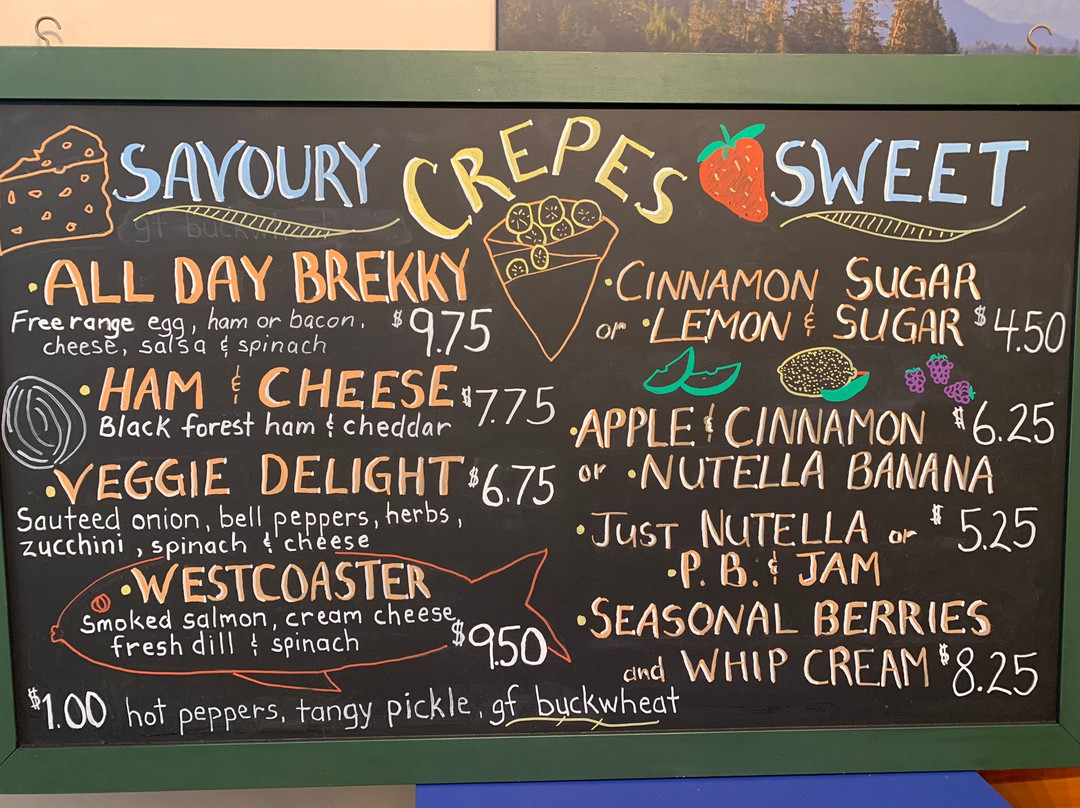 SAVOURY CREPES SWEET
gf buckwheat
·ALL DAY BREKKY
Free range egg, ham or bacon, $9.75
cheese, salsa & spinach
·HAM & CHEESE $7.75
Black forest ham & cheddar
·VEGGIE DELIGHT $6.75
Sauteed onion, bell peppers, herbs,
zucchini, spinach & cheese
·WESTCOASTER
Smoked salmon, cream cheese,
fresh dill & spinach $9.50
·CINNAMON SUGAR
or ·LEMON & SUGAR $4.50
·APPLE & CINNAMON $6.25
or ·NUTELLA BANANA
·JUST NUTELLA or $5.25
·P. B. & JAM
·SEASONAL BERRIES
and WHIP CREAM $8.25
$1.00 hot peppers, tangy pickle, gf buckwheat